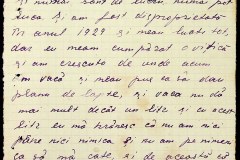 și numai sunt de lucru numai pot
lucra și, am fost disproprietărit
În anul 1929 și mean luat tot,
dar eu meam cumpărat o vițică
și am crescuto de unde acum
am vacă și meau pus ca să dau
planu de lapte, și vaca nu dă
mai mult decât un litr și cu acest
litr eu mă hrănesc că nu am nici
pâine nici nimica și nu am pe nimenea
ca să mă cate, și de această că